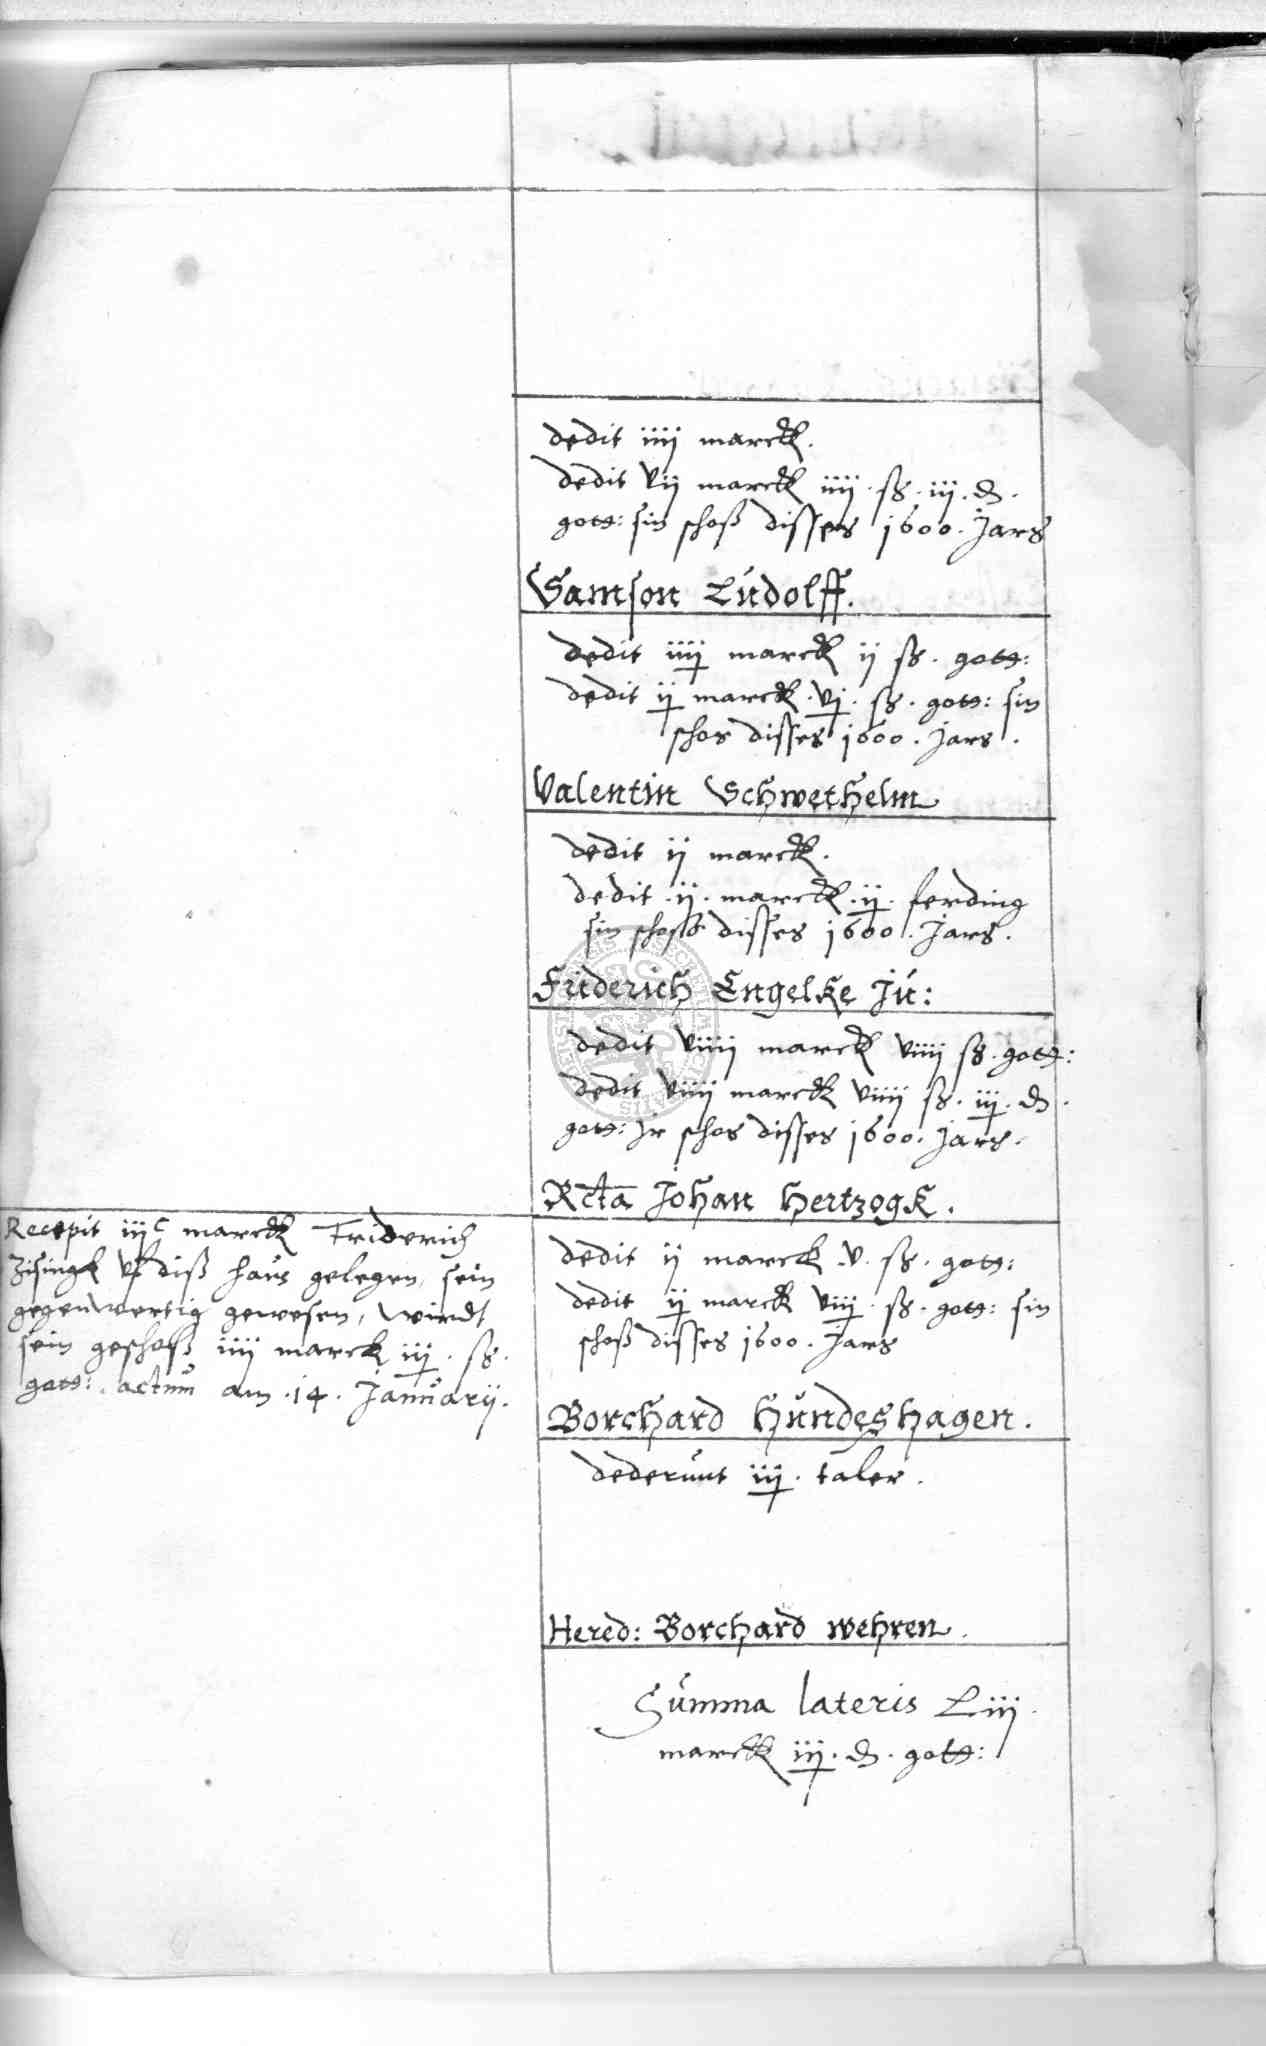 dedit iiij marck.
dedit vij marck iiij. ß. iij. d.
gott: sin schoß disses 1600. Jars
Samson Ludolff.
dedit iiij marck ij ß. gott:
dedit ij marck. vj. ß. gott: sin
schos disses 1600. Jars.
Valentin Schwethelm
dedit ij marck.
dedit. ij. marck. ij. ferding
sin schoß disses 1600. Jars.
Friderich Engelke Ju:
dedit viiij marck viiij ß. gott:
dedit viiij marck viiij ß. iij. d.
gott: Jr schos disses 1600. Jars.
Rcta Johan Hertzogk.
Recepit iijc marck Friderich
Zisingk uf diß haus gelegen, sein
gegenwertig gewesen, wirdt
sein geschoß iiij marck iij. ß.
gott: actum am. 14. Januarij.
dedit ij marck. v. ß. gott:
dedit ij marck viij. ß. gott: sin
schoß disses 1600. Jars
Borchard Hundeshagen.
dederunt iij. taler.
Hered: Borchard wehren.
Summa lateris Liij
marck iij. d. gott: